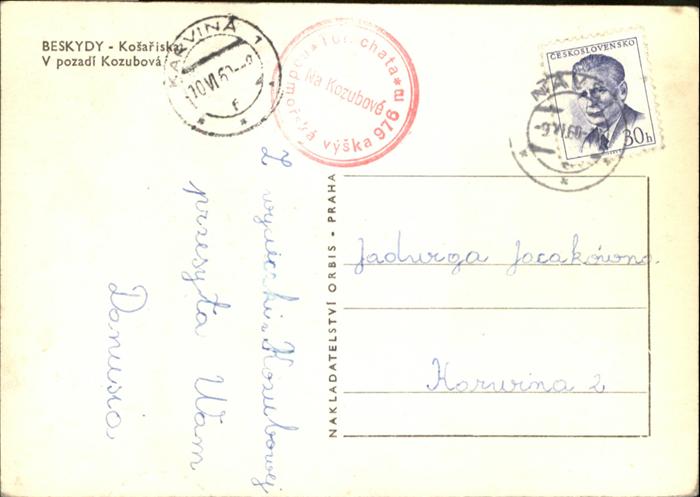 BESKYDY - Košařiska
V pozadí Kozubová
KARVINÁ 1
10.VI.60
Tur. chata
Na Kozubové
výška 976 m
ČESKOSLOVENSKO
NÁV
-9.VI.60
30h
Z wycieczki z Kozubowej
przesyła Wam
Danusia
NAKLADATELSTVÍ ORBIS - PRAHA
Jadwiga Jocakówna
Karwina 2